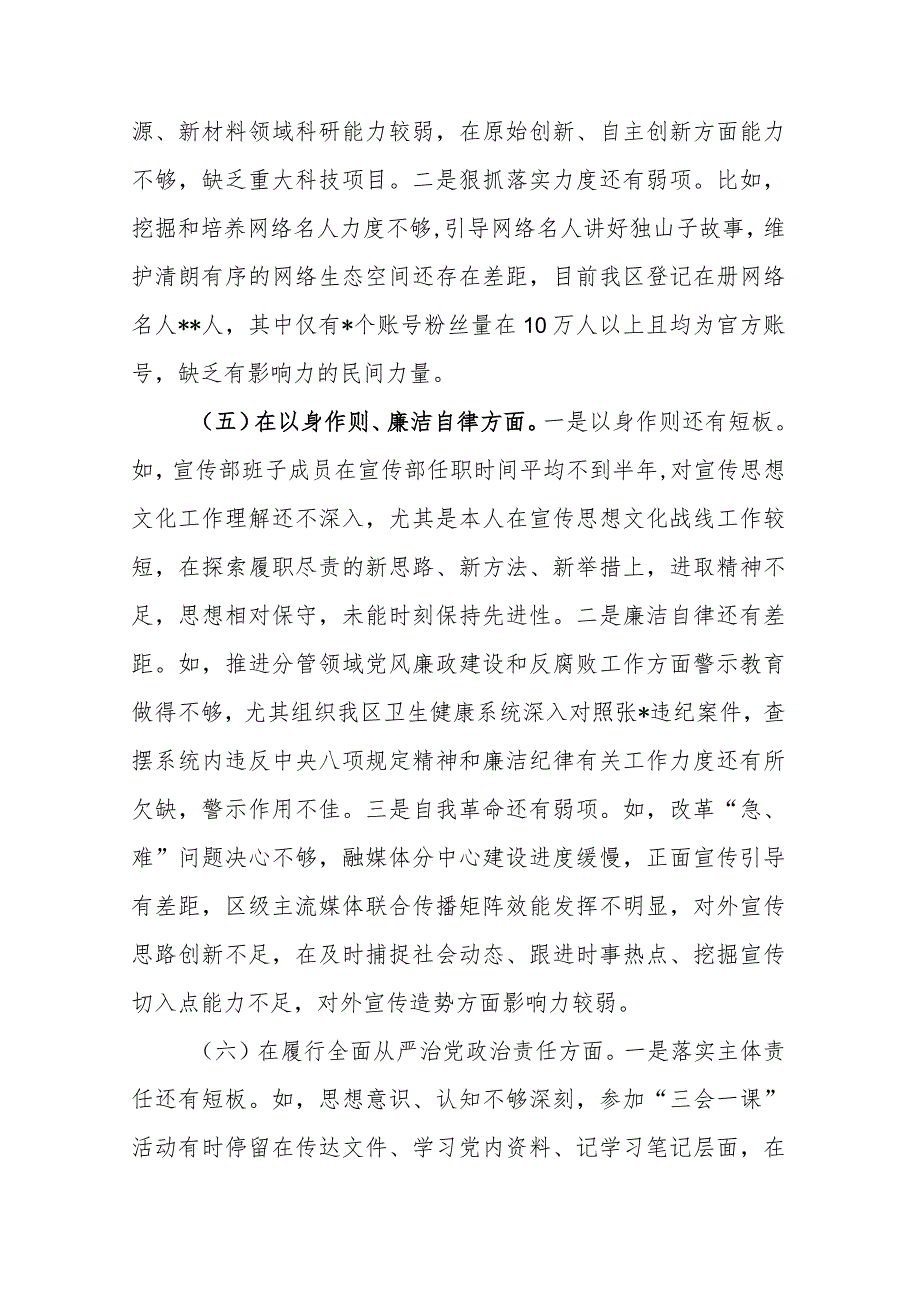 源、新材料领域科研能力较弱，在原始创新、自主创新方面能力
不够，缺乏重大科技项目。二是狠抓落实力度还有弱项。比如，
挖掘和培养网络名人力度不够,引导网络名人讲好独山子故事，维
护清朗有序的网络生态空间还存在差距，目前我区登记在册网络
名人**人，其中仅有*个账号粉丝量在10万人以上且均为官方账
号，缺乏有影响力的民间力量。
（五）在以身作则、廉洁自律方面。一是以身作则还有短板。
如，宣传部班子成员在宣传部任职时间平均不到半年,对宣传思想
文化工作理解还不深入，尤其是本人在宣传思想文化战线工作较
短，在探索履职尽责的新思路、新方法、新举措上，进取精神不
足，思想相对保守，未能时刻保持先进性。二是廉洁自律还有差
距。如，推进分管领域党风廉政建设和反腐败工作方面警示教育
做得不够，尤其组织我区卫生健康系统深入对照张*违纪案件，查
摆系统内违反中央八项规定精神和廉洁纪律有关工作力度还有所
欠缺，警示作用不佳。三是自我革命还有弱项。如，改革“急、
难”问题决心不够，融媒体分中心建设进度缓慢，正面宣传引导
有差距，区级主流媒体联合传播矩阵效能发挥不明显，对外宣传
思路创新不足，在及时捕捉社会动态、跟进时事热点、挖掘宣传
切入点能力不足，对外宣传造势方面影响力较弱。
（六）在履行全面从严治党政治责任方面。一是落实主体责
任还有短板。如，思想意识、认知不够深刻，参加“三会一课”
活动有时停留在传达文件、学习党内资料、记学习笔记层面，在